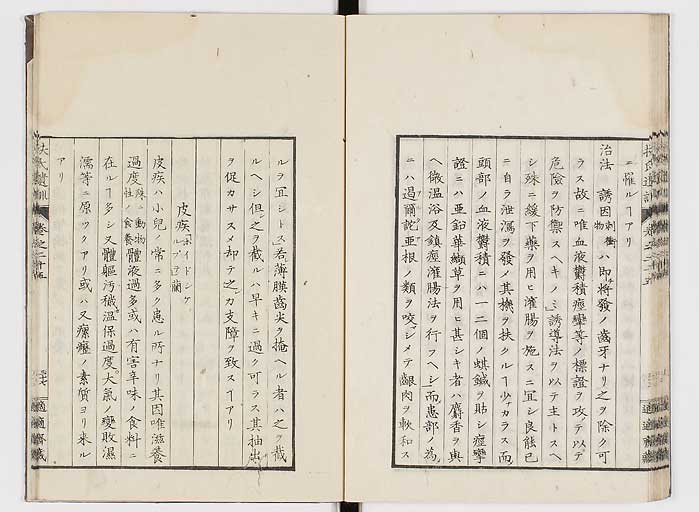 ニ罹ルヿアリ
治法 誘因刺衝物ハ即將發ノ齒牙ナリ之ヲ除ク可
ラス故ニ唯血液鬱積痙攣等ノ標證ヲ攻テ以テ
危險ヲ防禦スヘキノミ誘導法ヲ以テ主トスヘ
シ殊ニ緩下藥ヲ用ヒ灌腸ヲ施スニ宜シ良能已
ニ自ラ泄瀉ヲ發メ其機ヲ扶クルヿ少カラス而
頭部ノ血液鬱積ニハ一二個ノ蜞鍼ヲ貼シ痙攣
證ニハ亜鉛華纈草ヲ用ヒ甚シキ者ハ麝香ヲ與
ヘ微温浴及鎮痙灌腸法ヲ行フヘシ而患部ノ為
ニハ遏爾託亜根ノ類ヲ咬シメテ齦肉ヲ軟和ス
扶氏遺訓 巻之二十五
ルヲ宜シトス若薄膜齒尖ヲ掩ヘル者ハ之ヲ截
ルヘシ但之ヲ截ルハ早キニ過ク可ラス其抽出
ヲ促カサスメ却テ之カ支障ヲ致スヿアリ
皮疾
皮疾ハ小兒ノ常ニ多ク患ル所ナリ其因唯滋養
過度殊ニ動物性ノ食養體液過多或ハ有害辛味ノ食料ニ
在ルヿ多シ又體軀汚穢温保過度大氣ノ變敗濕
濡等ニ原ツクアリ或ハ又瘰癧ノ素質ヨリ来ル
アリ
適適齋藏